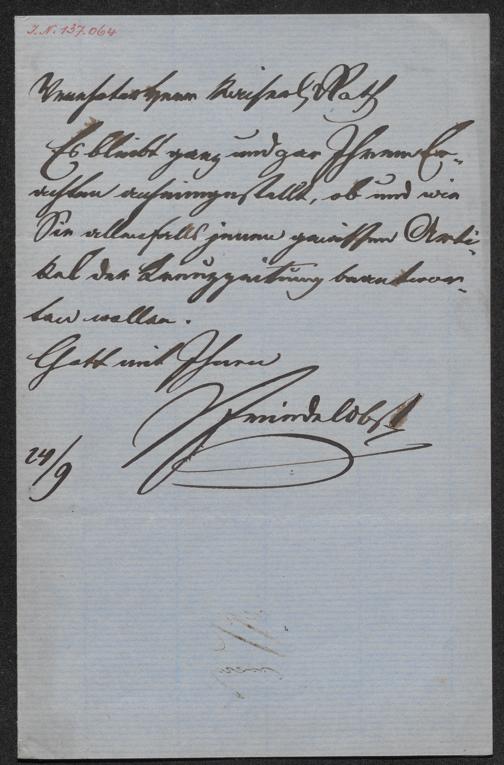 I.N. 137.064
Verehrter Herr Kaiserl. Rath
Es bleibt ganz und gar Ihrem Er-
achten anheimgestellt, ob und wie
Sie allenfalls jenen gewissen Arti-
kel der Kreuzzeitung beantwor-
ten wollen.
Gott mit Ihnen
24/9